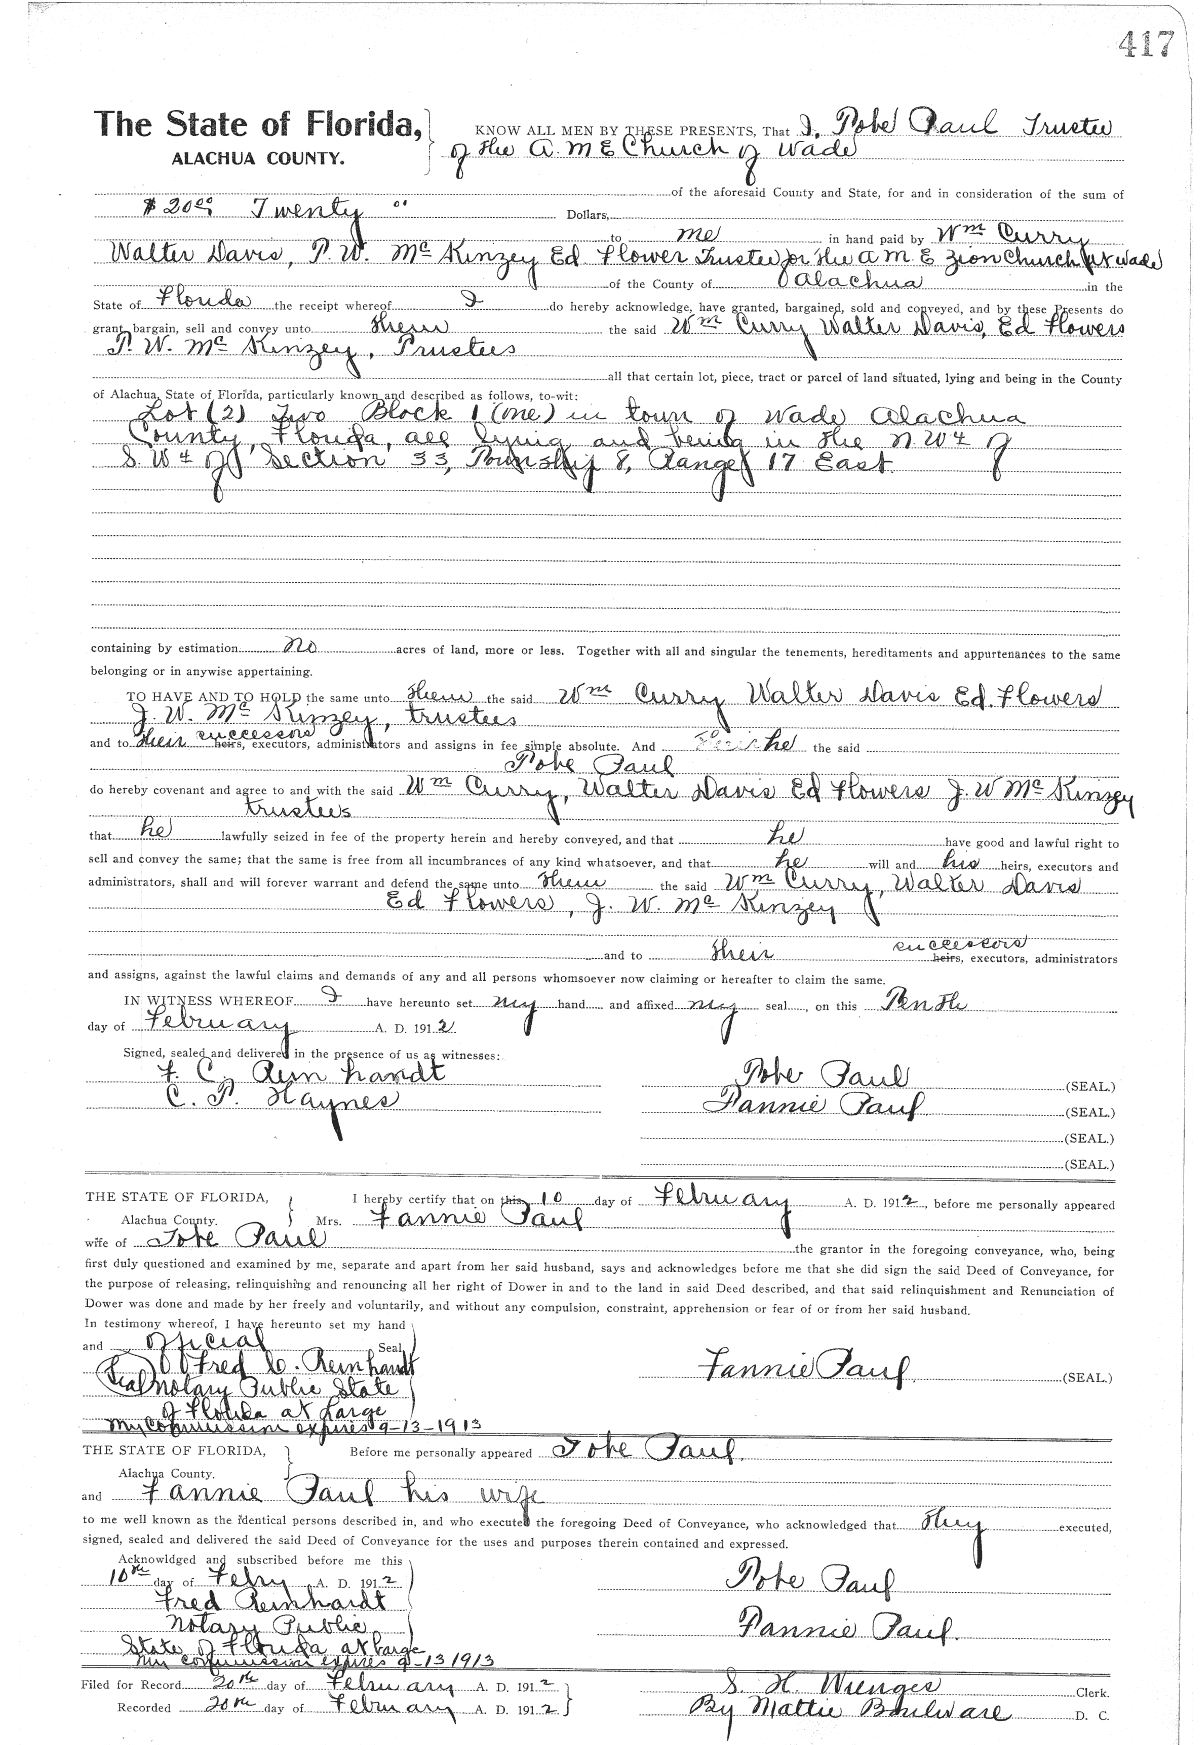 417
The State of Florida, KNOW ALL MEN BY THESE PRESENTS, That I, Tobe Paul Trustee
ALACHUA COUNTY. of the A. M E Church of Wade
of the aforesaid County and State, for and in consideration of the sum of
$20.00 Twenty 00 Dollars,
to me in hand paid by Wm Curry
Walter Davis, P. W. Mc Kinzey Ed Flower Trustee for the A M E Zion Church at Wade
of the County of Alachua in the
State of Florida the receipt whereof I do hereby acknowledge, have granted, bargained, sold and conveyed, and by these Presents do
grant, bargain, sell and convey unto them the said Wm Curry Walter Davis, Ed Flowers
P. W. Mc Kinzey, Trustees
all that certain lot, piece, tract or parcel of land situated, lying and being in the County
of Alachua, State of Florida, particularly known and described as follows, to-wit:
Lot (2) Two Block 1 (one) in town of Wade Alachua
County, Florida, all lying and being in the N W4 of
S. W4 of Section 33, Township 8, Range 17 East
containing by estimation no acres of land, more or less. Together with all and singular the tenements, hereditaments and appurtenances to the same
belonging or in anywise appertaining.
TO HAVE AND TO HOLD the same unto them the said Wm Curry Walter Davis Ed. Flowers
J. W. Mc Kinzey, trustees
and to their successors heirs, executors, administrators and assigns in fee simple absolute. And he the said
Tobe Paul
do hereby covenant and agree to and with the said Wm Curry, Walter Davis Ed Flowers J. W Mc Kinzey
trustees
that he lawfully seized in fee of the property herein and hereby conveyed, and that he have good and lawful right to
sell and convey the same; that the same is free from all incumbrances of any kind whatsoever, and that he will and his heirs, executors and
administrators, shall and will forever warrant and defend the same unto them the said Wm Curry, Walter Davis
Ed Flowers, J. W. Mc Kinzey
and to their successors heirs, executors, administrators
and assigns, against the lawful claims and demands of any and all persons whomsoever now claiming or hereafter to claim the same.
IN WITNESS WHEREOF I have hereunto set my hand and affixed my seal, on this Tenth
day of February A. D. 1912.
Signed, sealed and delivered in the presence of us as witnesses:
F. C. Rein hardt Tobe Paul (SEAL.)
C. P. Haynes Fannie Paul (SEAL.)
(SEAL.)
(SEAL.)
THE STATE OF FLORIDA, I hereby certify that on this 10 day of February A. D. 1912, before me personally appeared
Alachua County. Mrs. Fannie Paul
wife of Tobe Paul the grantor in the foregoing conveyance, who, being
first duly questioned and examined by me, separate and apart from her said husband, says and acknowledges before me that she did sign the said Deed of Conveyance, for
the purpose of releasing, relinquishing and renouncing all her right of Dower in and to the land in said Deed described, and that said relinquishment and Renunciation of
Dower was done and made by her freely and voluntarily, and without any compulsion, constraint, apprehension or fear of or from her said husband.
In testimony whereof, I have hereunto set my hand
and official Seal
Fred C. Reinhardt Fannie Paul (SEAL.)
Seal Notary Public State
of Florida at Large
My Commission expires 9-13-1913
THE STATE OF FLORIDA, Before me personally appeared Tobe Paul
Alachua County.
and Fannie Paul his wife
to me well known as the identical persons described in, and who executed the foregoing Deed of Conveyance, who acknowledged that they executed,
signed, sealed and delivered the said Deed of Conveyance for the uses and purposes therein contained and expressed.
Acknowldged and subscribed before me this
10th day of Feby A. D. 1912 Tobe Paul
Fred Reinhardt
Notary Public Fannie Paul.
State of Florida at Large
My commission expires 9-13 1913
Filed for Record 20th day of February A. D. 1912 S. H. Wienges Clerk.
Recorded 20th day of February A. D. 1912 By Mattie Boulware D. C.